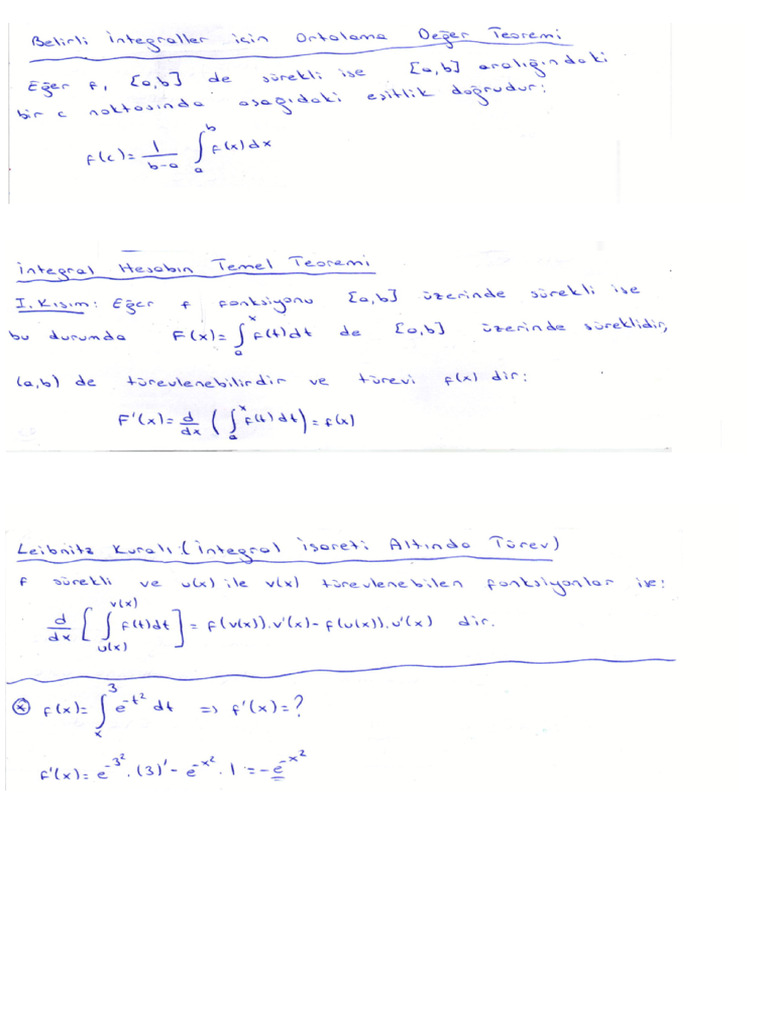 Belirli İntegraller için Ortalama Değer Teoremi
Eğer f, [a,b] de sürekli ise [a,b] aralığındaki
bir c noktasında aşağıdaki eşitlik doğrudur:
f(c)= 1/(b-a) ∫_a^b f(x)dx
İntegral Hesabın Temel Teoremi
I. Kısım: Eğer f fonksiyonu [a,b] üzerinde sürekli ise
bu durumda F(x)= ∫_a^x f(t)dt de [a,b] üzerinde süreklidir,
(a,b) de türevlenebilirdir ve türevi f(x) dir:
F'(x)= d/dx ( ∫_a^x f(t)dt ) = f(x)
Leibnitz Kuralı: (İntegral İşareti Altında Türev)
f sürekli ve u(x) ile v(x) türevlenebilen fonksiyonlar ise:
d/dx [ ∫_{u(x)}^{v(x)} f(t)dt ] = f(v(x)).v'(x)-f(u(x)).u'(x) dir.
* f(x)= ∫_x^3 e^{-t^2} dt => f'(x)=?
f'(x)= e^{-3^2}.(3)' - e^{-x^2}.1 = -e^{-x^2}